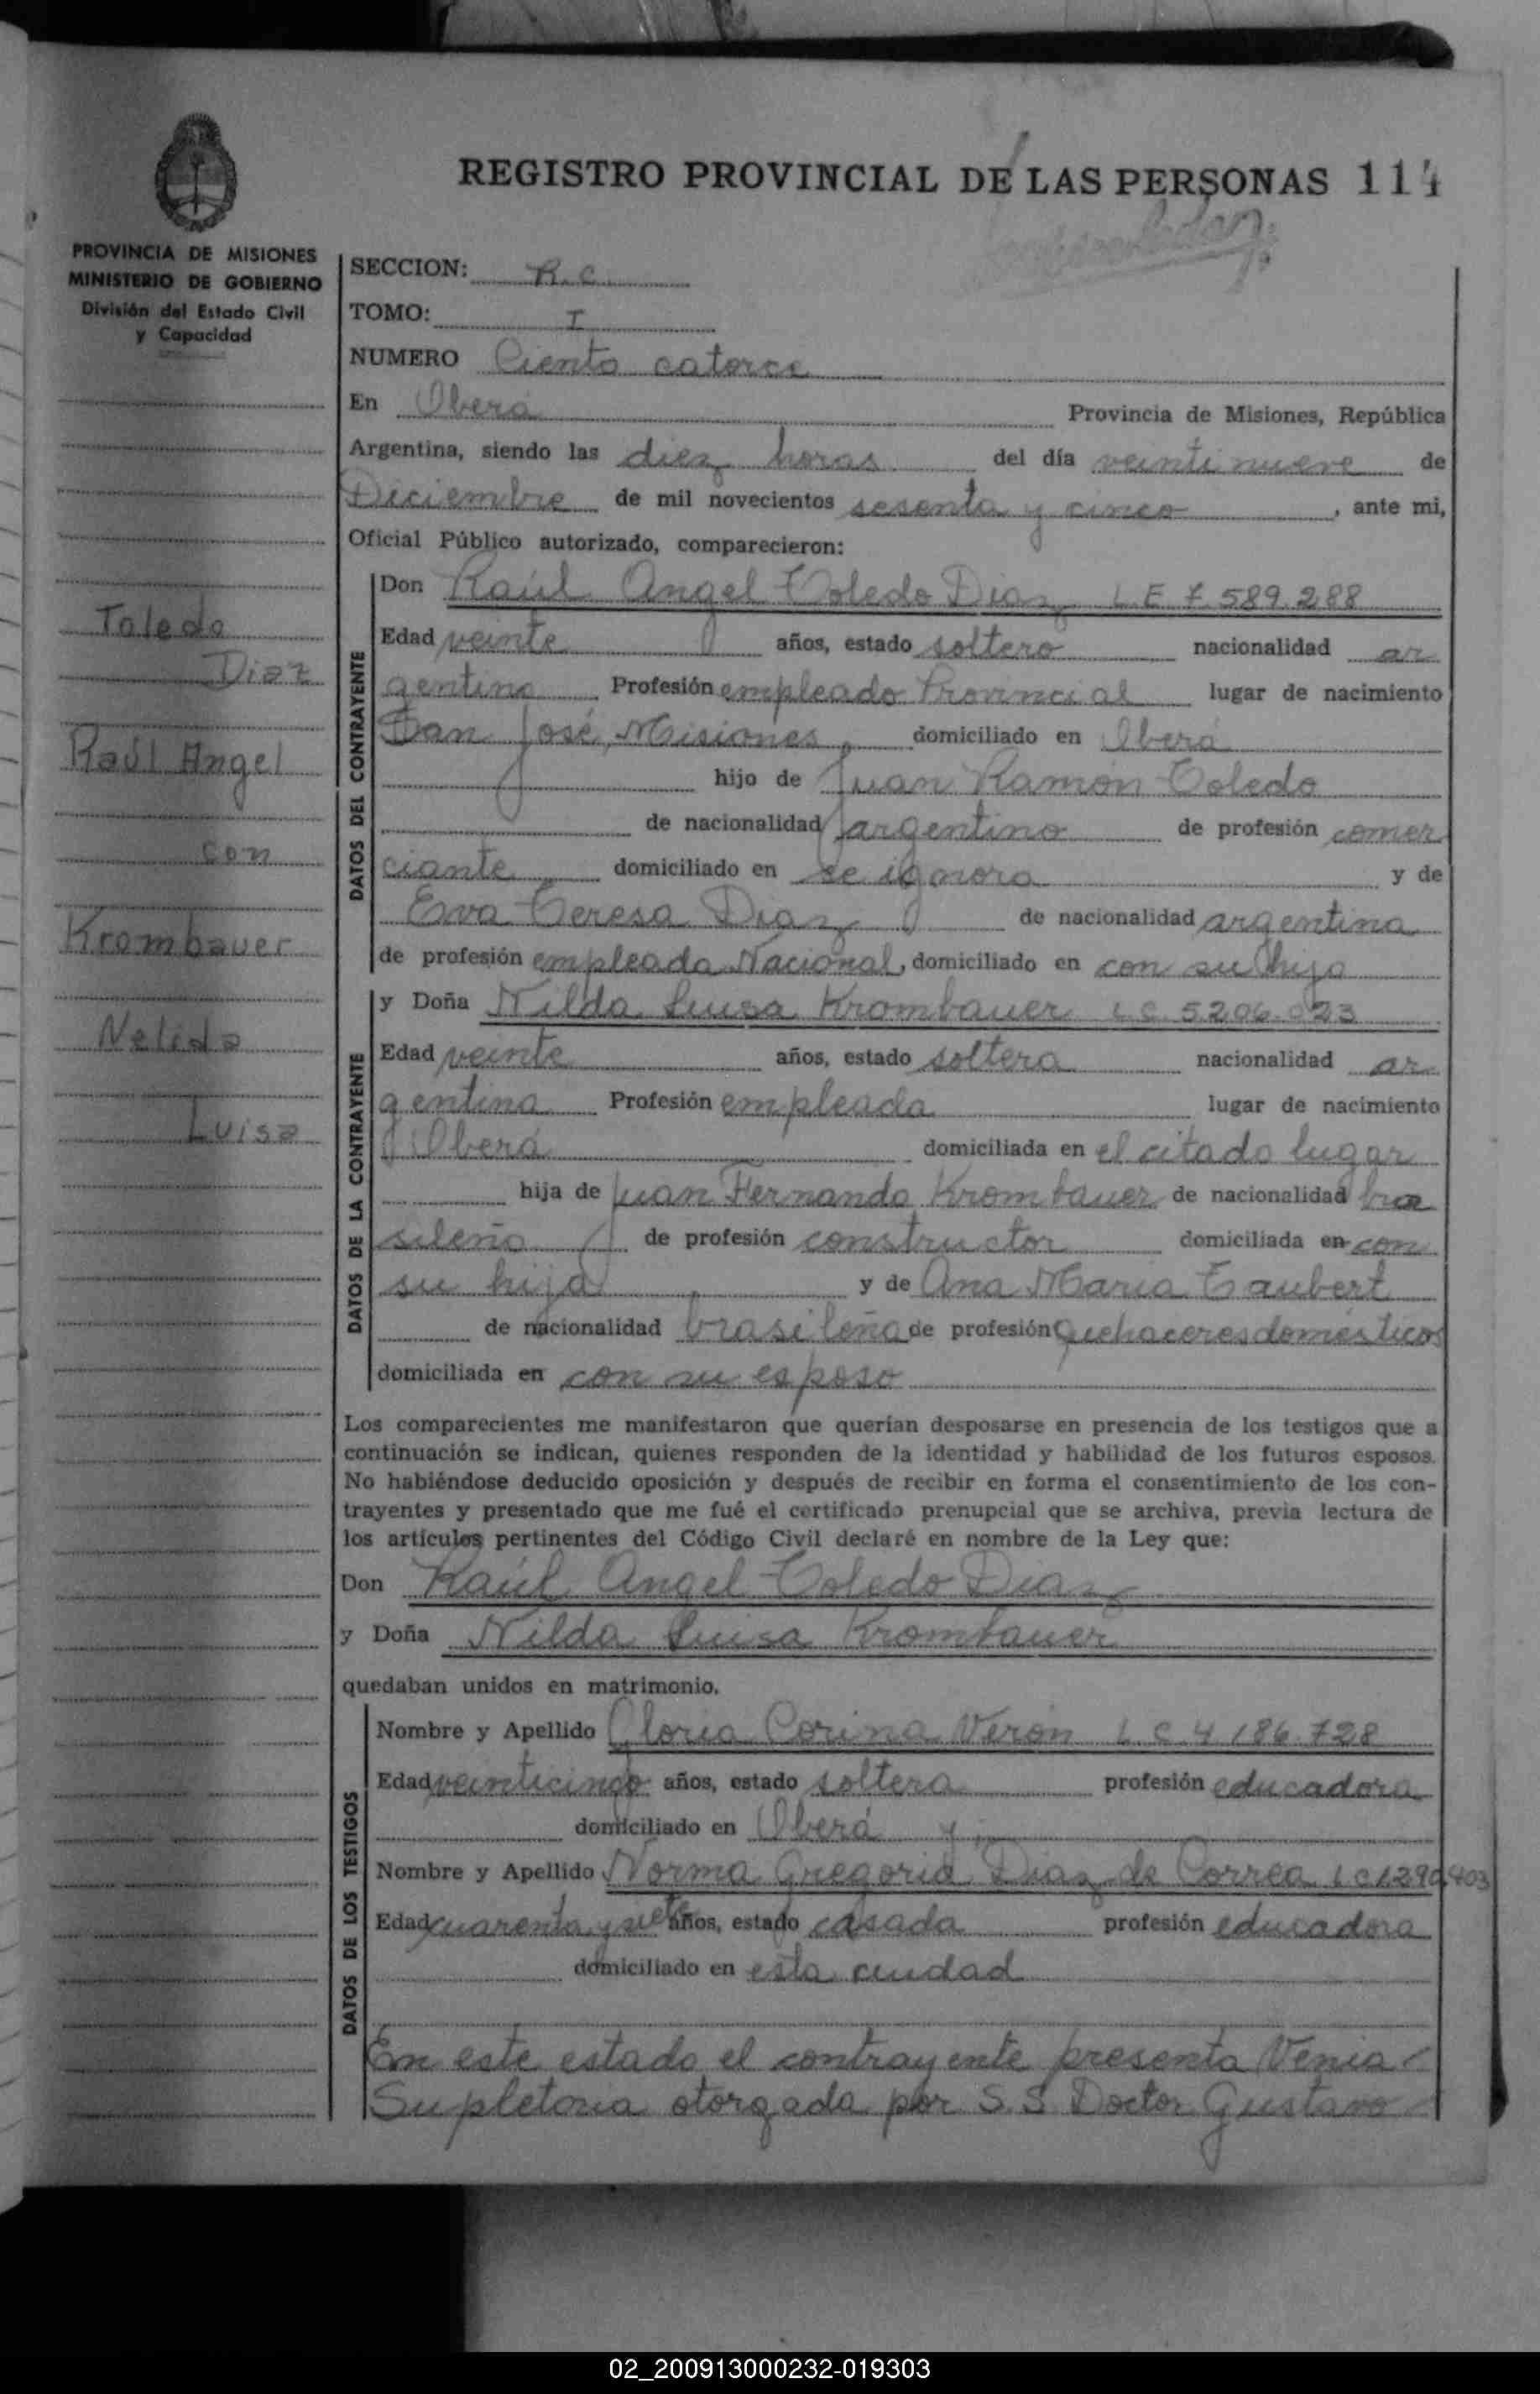 REGISTRO PROVINCIAL DE LAS PERSONAS 114
PROVINCIA DE MISIONES
MINISTERIO DE GOBIERNO
División del Estado Civil
y Capacidad
Toledo
Diaz
Raúl Angel
con
Krombauer
Nelida
Luisa
SECCION: R.C.
TOMO: I
NUMERO Ciento catorce
En Oberá Provincia de Misiones, República
Argentina, siendo las diez horas del día veintinueve de
Diciembre de mil novecientos sesenta y cinco, ante mi,
Oficial Público autorizado, comparecieron:
DATOS DEL CONTRAYENTE
Don Raúl Angel Toledo Diaz L E 7.589.288
Edad veinte años, estado soltero nacionalidad ar
gentina Profesión empleado Provincial lugar de nacimiento
San José, Misiones, domiciliado en Oberá
hijo de Juan Ramón Toledo
de nacionalidad argentino de profesión comer
ciante domiciliado en se ignora y de
Eva Teresa Diaz de nacionalidad argentina
de profesión empleada Nacional, domiciliado en con su hijo
DATOS DE LA CONTRAYENTE
y Doña Nilda Luisa Krombauer L C 5.206.023
Edad veinte años, estado soltera nacionalidad ar
gentina Profesión empleada lugar de nacimiento
Oberá domiciliada en el citado lugar
hija de Juan Fernando Krombauer de nacionalidad bra
sileño de profesión constructor domiciliada en con
su hija y de Ana Maria Taubert
de nacionalidad brasileña de profesión quehaceres domésticos
domiciliada en con su esposo
Los comparecientes me manifestaron que querían desposarse en presencia de los testigos que a
continuación se indican, quienes responden de la identidad y habilidad de los futuros esposos.
No habiéndose deducido oposición y después de recibir en forma el consentimiento de los con-
trayentes y presentado que me fué el certificado prenupcial que se archiva, previa lectura de
los artículos pertinentes del Código Civil declaré en nombre de la Ley que:
Don Raúl Angel Toledo Diaz
y Doña Nilda Luisa Krombauer
quedaban unidos en matrimonio.
DATOS DE LOS TESTIGOS
Nombre y Apellido Gloria Corina Verón L C 4 186.728
Edad veinticinco años, estado soltera profesión educadora
domiciliado en Oberá y
Nombre y Apellido Norma Gregoria Diaz de Correa L C 1.290.403
Edad cuarenta y siete años, estado casada profesión educadora
domiciliado en esta ciudad
En este estado el contrayente presenta Venia
Supletoria otorgada por S.S Doctor Gustavo
02_200913000232-019303